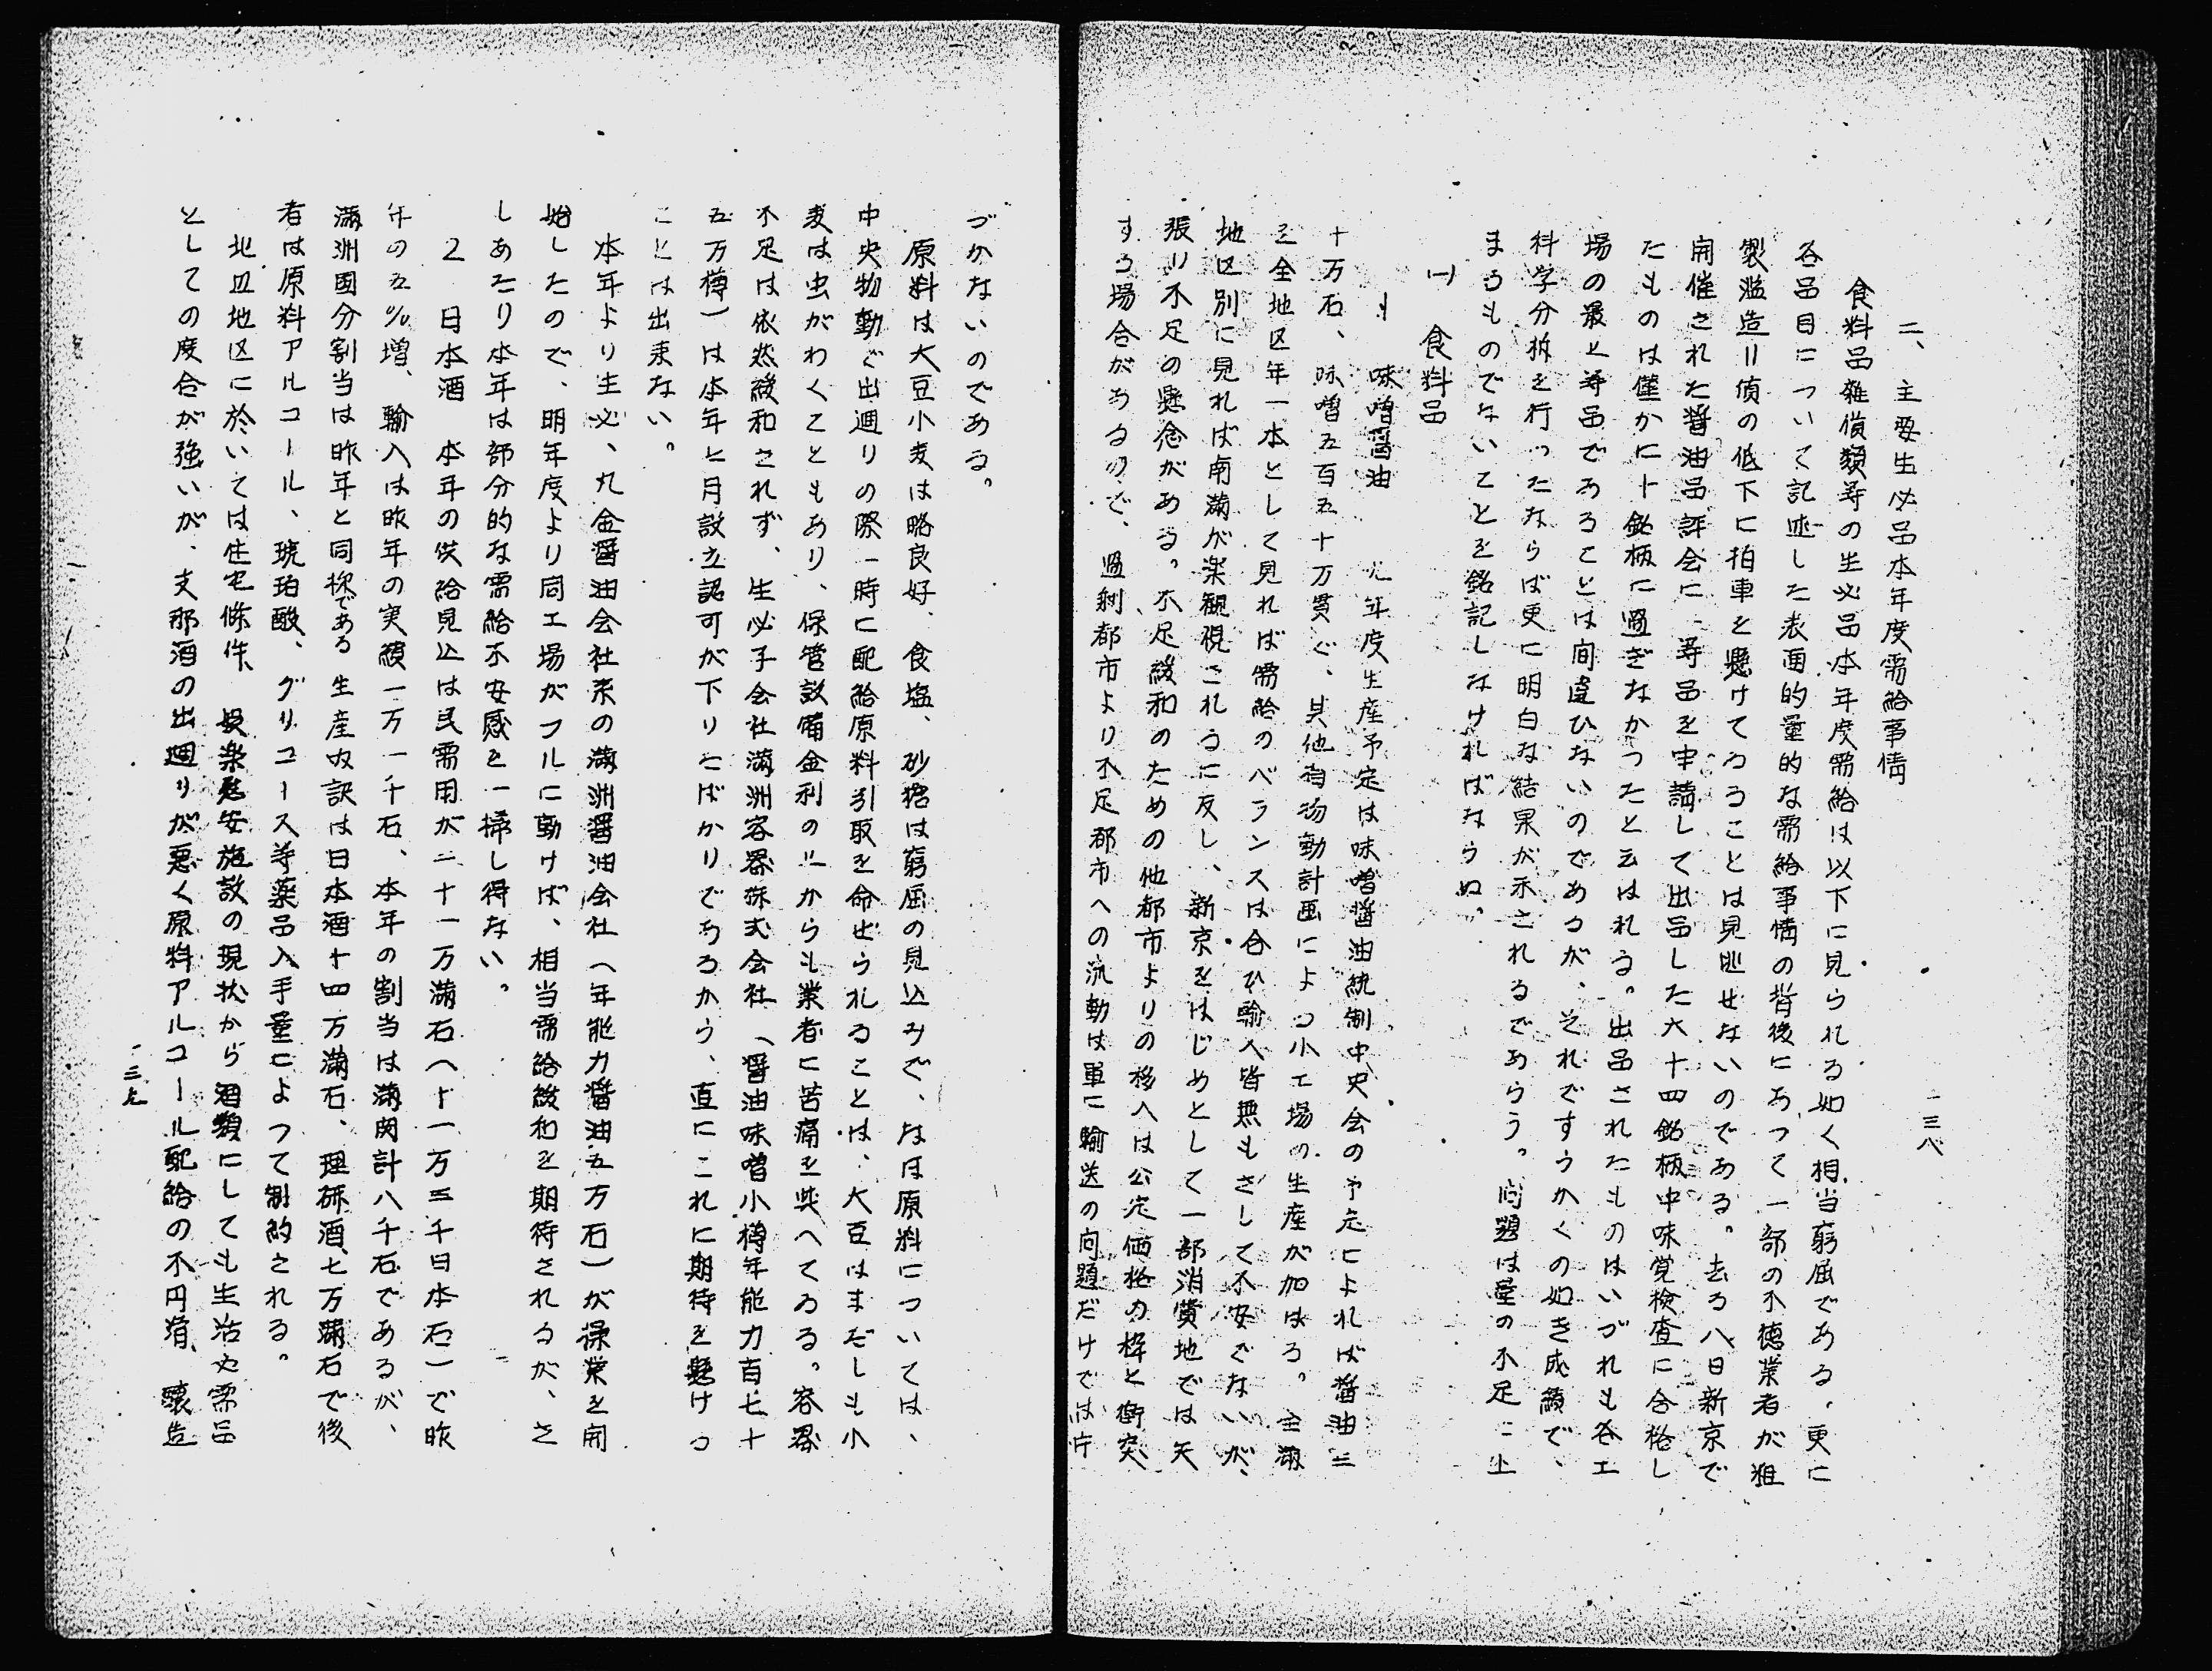 一三八
二、主要生必品本年度需給事情
食料品雑貨類等の生必品本年度需給は以下に見られる如く相当窮屈である。更に
各品目について記述した表面的量的な需給事情の背後にあつて一部の不徳業者が粗
製濫造＝値の低下に拍車を懸けてゐることは見逃せないのである。去る八日新京で
開催された醤油品評会に一等品を申請して出品した六十四銘柄中味覚検査に合格し
たものは僅かに十銘柄に過ぎなかつたと云はれる。出品されたものはいづれも各工
場の最上等品であることは間違ひないのであるが、それですらかくの如き成績で、
科学分析を行つたならば更に明白な結果が示されるであらう。問題は量の不足に止
まるものでないことを銘記しなければならぬ。
(一) 食料品
1 味噌醤油　九年度生産予定は味噌醤油統制中央会の予定によれば醤油三
十万石、味噌五百五十万貫で、其他自物動計画による小工場の生産が加はる。全満
を全地区年一本として見れば需給のバランスは合ひ輸入皆無もさして不安でないが、
地区別に見れば南満が楽観視されるに反し、新京をはじめとして一部消費地では矢
張り不足の懸念がある。不足緩和のための他都市よりの移入は公定価格の枠と衝突
する場合があるので、過剰都市より不足都市への流動は単に輸送の問題だけでは片
づかないのである。
原料は大豆小麦は略良好、食塩、砂糖は窮屈の見込みで、なほ原料については、
中央物動で出廻りの際一時に配給原料引取を命ぜられることは、大豆はまだしも小
麦は虫がわくこともあり、保管設備金利の上からも業者に苦痛を与へてゐる。容器
不足は依然緩和されず、生必子会社満洲容器株式会社（醤油味噌小樽年能力百七十
五万樽）は本年七月設立認可が下りたばかりであるから、直にこれに期待を懸ける
ことは出来ない。
本年より生必、丸金醤油会社系の満洲醤油会社（年能力醤油五万石）が操業を開
始したので、明年度より同工場がフルに動けば、相当需給緩和を期待されるが、さ
しあたり本年は部分的な需給不安感を一掃し得ない。
2 日本酒　本年の供給見込は民需用が二十一万満石（十一万三千日本石）で昨
年の五％増、輸入は昨年の実績一万一千石、本年の割当は満関計八千石であるが、
満洲国分割当は昨年と同様である 生産内訳は日本酒十四万満石、理研酒七万満石で後
者は原料アルコール、琥珀酸、グリコース等薬品入手量によつて制約される。
北辺地区に於いては住宅條件、娯楽慰安施設の現状から酒類にしても生活必需品
としての度合が強いが、支那酒の出廻りが悪く原料アルコール配給の不円滑、醸造
一三九